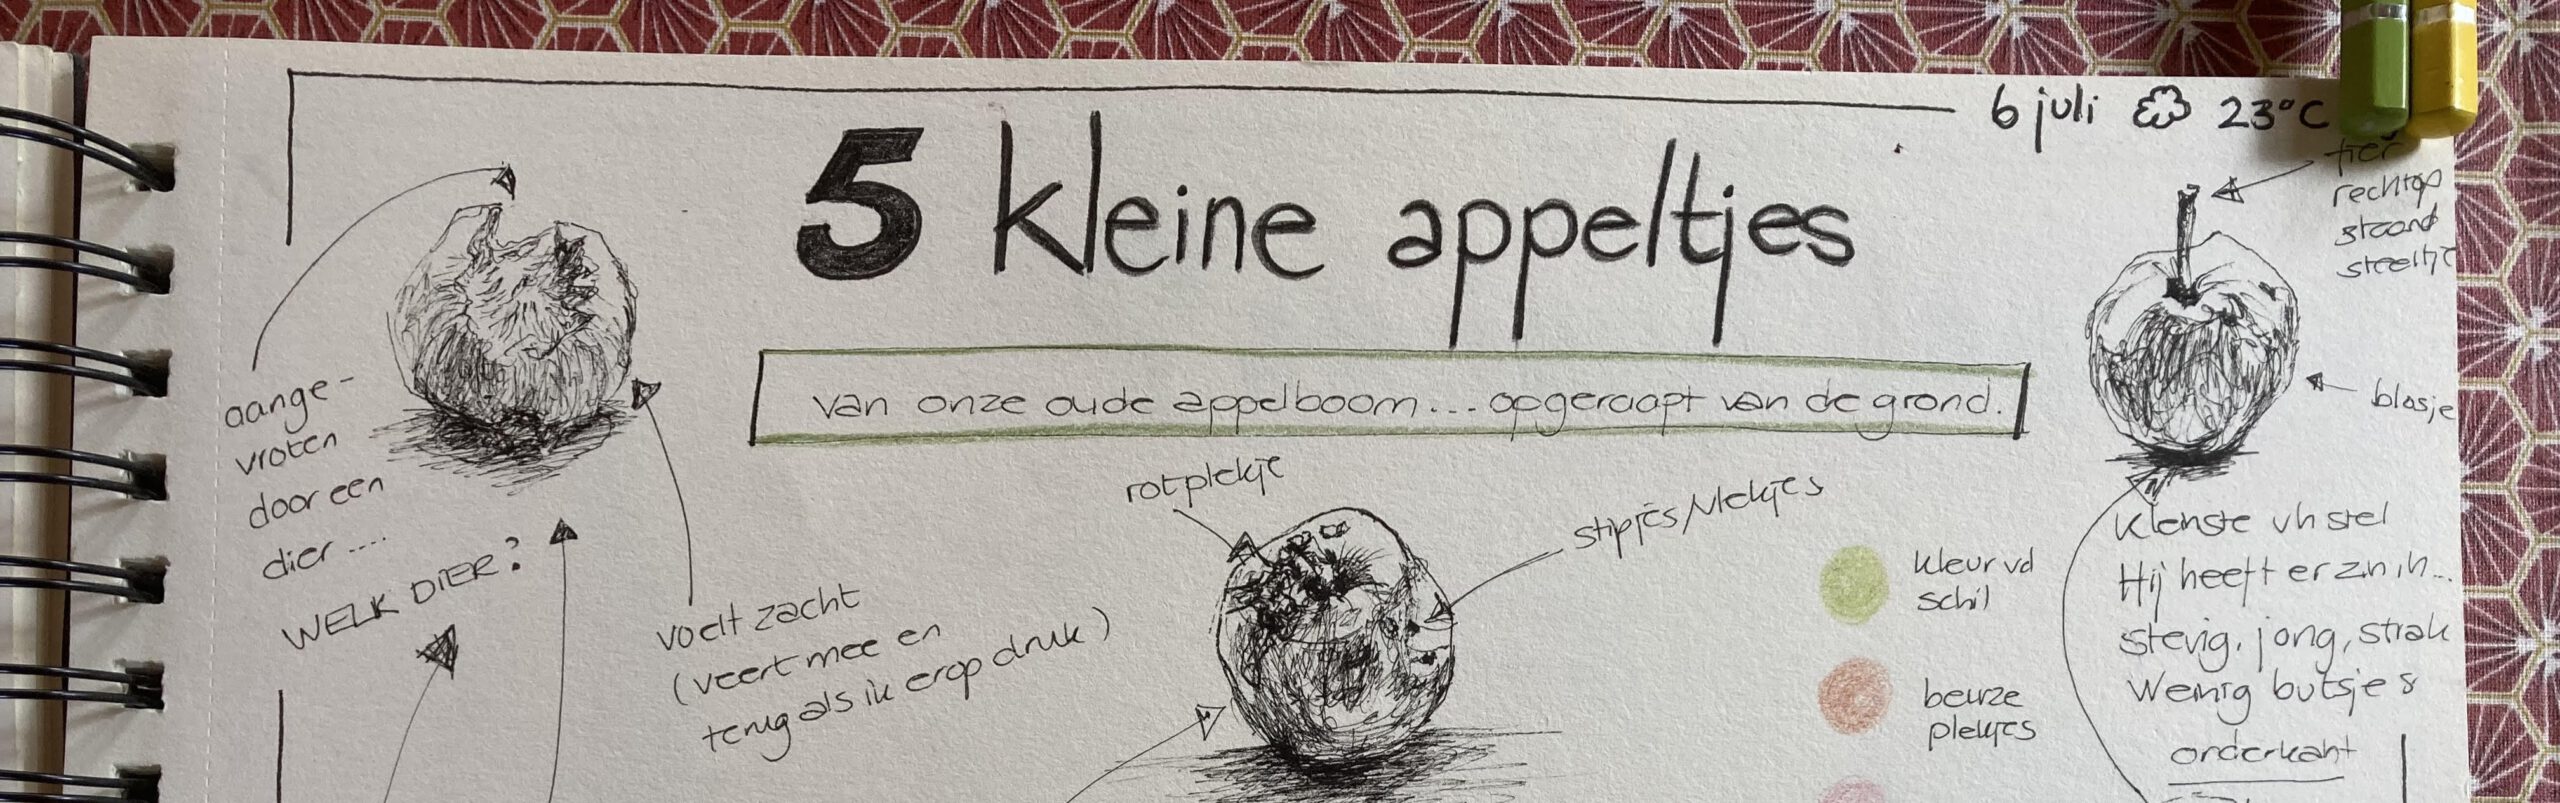 6 juli 23°C
5 kleine appeltjes
van onze oude appelboom... opgeraapt van de grond.
aange-
vroten
door een
dier ....
WELK DIER?
voelt zacht
(veert mee en
terug als ik erop druk)
rotplekje
stipjes/vlekjes
kleur vd
schil
beurze
plekjes
fier
rechtop
staand
steeltje
blosje
kleinste vh stel
Hij heeft er zin in...
stevig, jong, strak
Weinig butsjes
onderkant